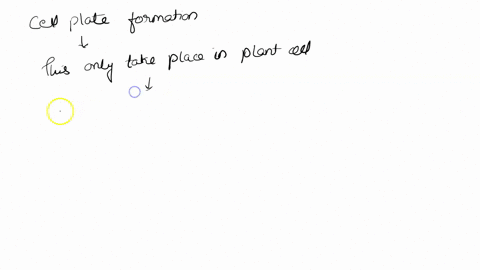 Cell plate formation
↓
This only take place in plant cell
↓